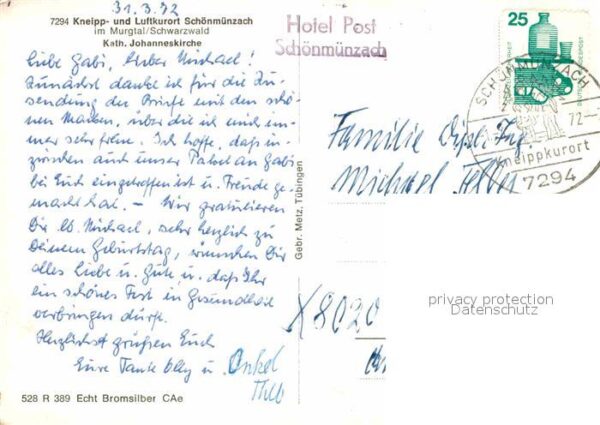 31.3.72
7294 Kneipp- und Luftkurort Schönmünzach
im Murgtal/Schwarzwald
Kath. Johanneskirche
Liebe Gabi, lieber Michael!
Zunächst danke ich für die Zu-
sendung der Briefe mit den schö-
nen Marken, über die ich mich im-
mer sehr freue. Ich hoffe, daß in-
zwischen auch unser Paket an Gabi
bei Euch eingetroffen ist u. Freude ge-
macht hat. – Wir gratulieren
Dir lb. Michael, sehr herzlich zu
Deinem Geburtstag, wünschen Dir
alles Liebe u. Gute u. daß Ihr
ein schönes Fest in Gesundheit
verbringen dürft.
Herzlichst grüßen Euch
Eure Tante u. Onkel
528 R 389 Echt Bromsilber CAe
Gebr. Metz, Tübingen
Hotel Post
Schönmünzach
25
DEUTSCHE BUNDESPOST
SCHÖNMÜNZACH
72
Kneippkurort
7294
Familie Dipl. Ing.
Michael
X 8020
privacy protection
Datenschutz